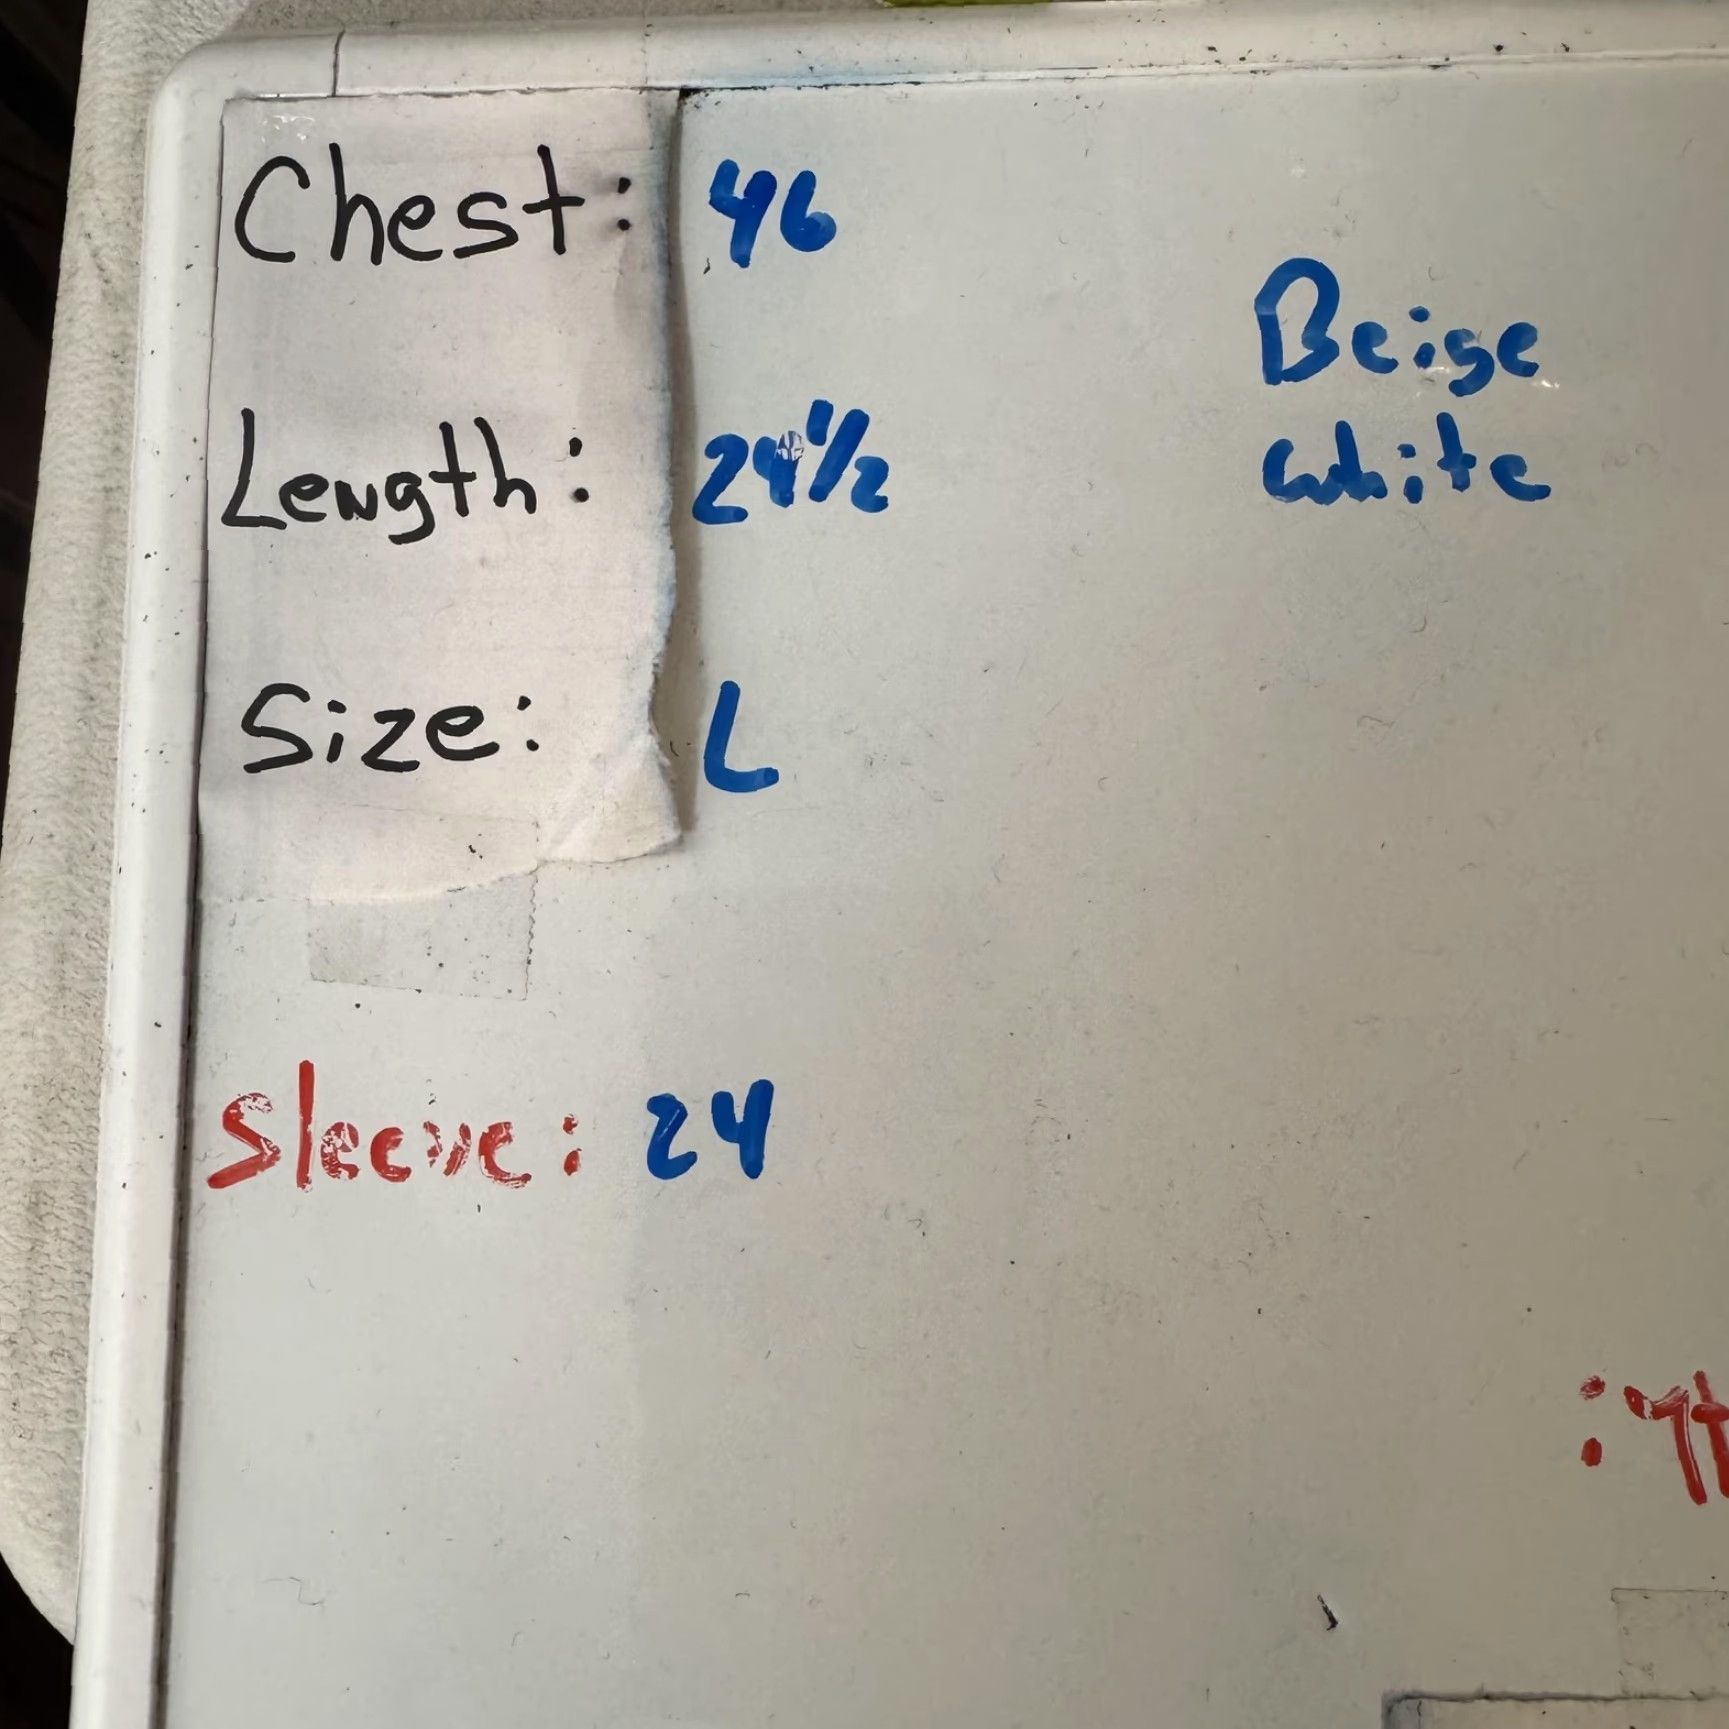 Chest: 46
Beige
Length: 24 1/2
white
Size: L
Sleeve: 24